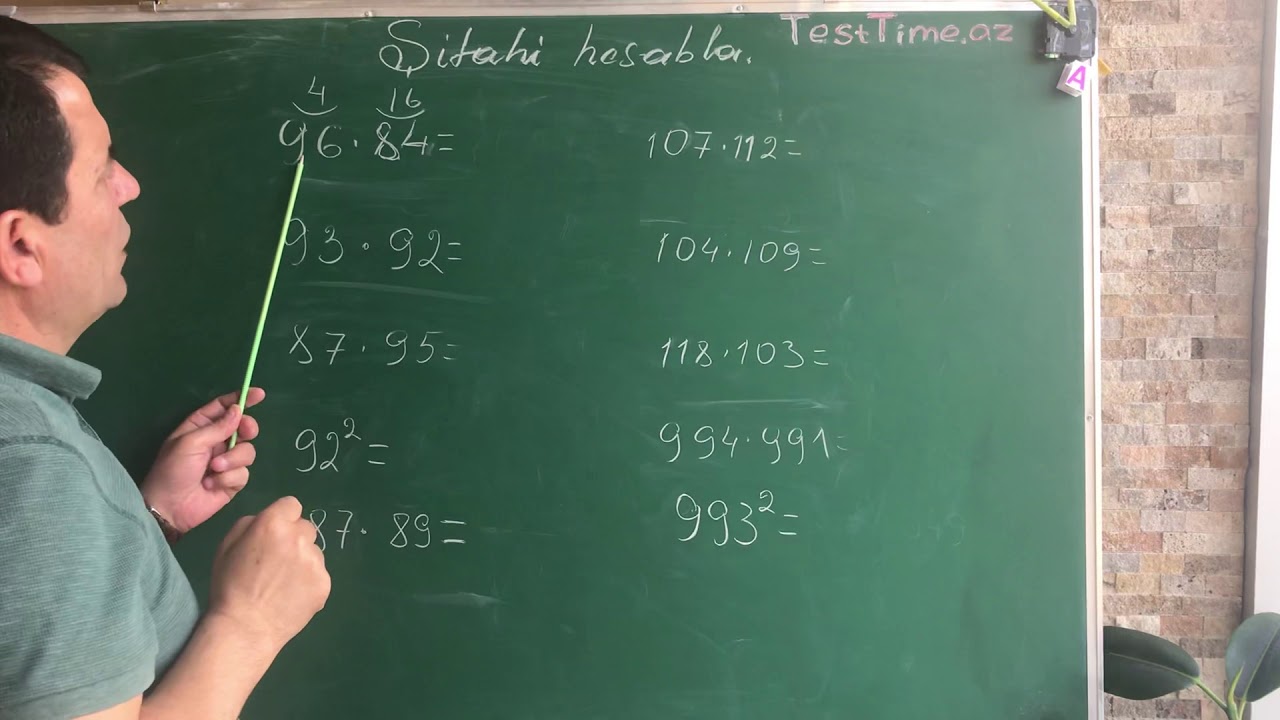 Şifahi hesabla.
TestTime.az
4 16
96·84=
93·92=
87·95=
92²=
87·89=
107·112=
104·109=
118·103=
994·991=
993²=
A